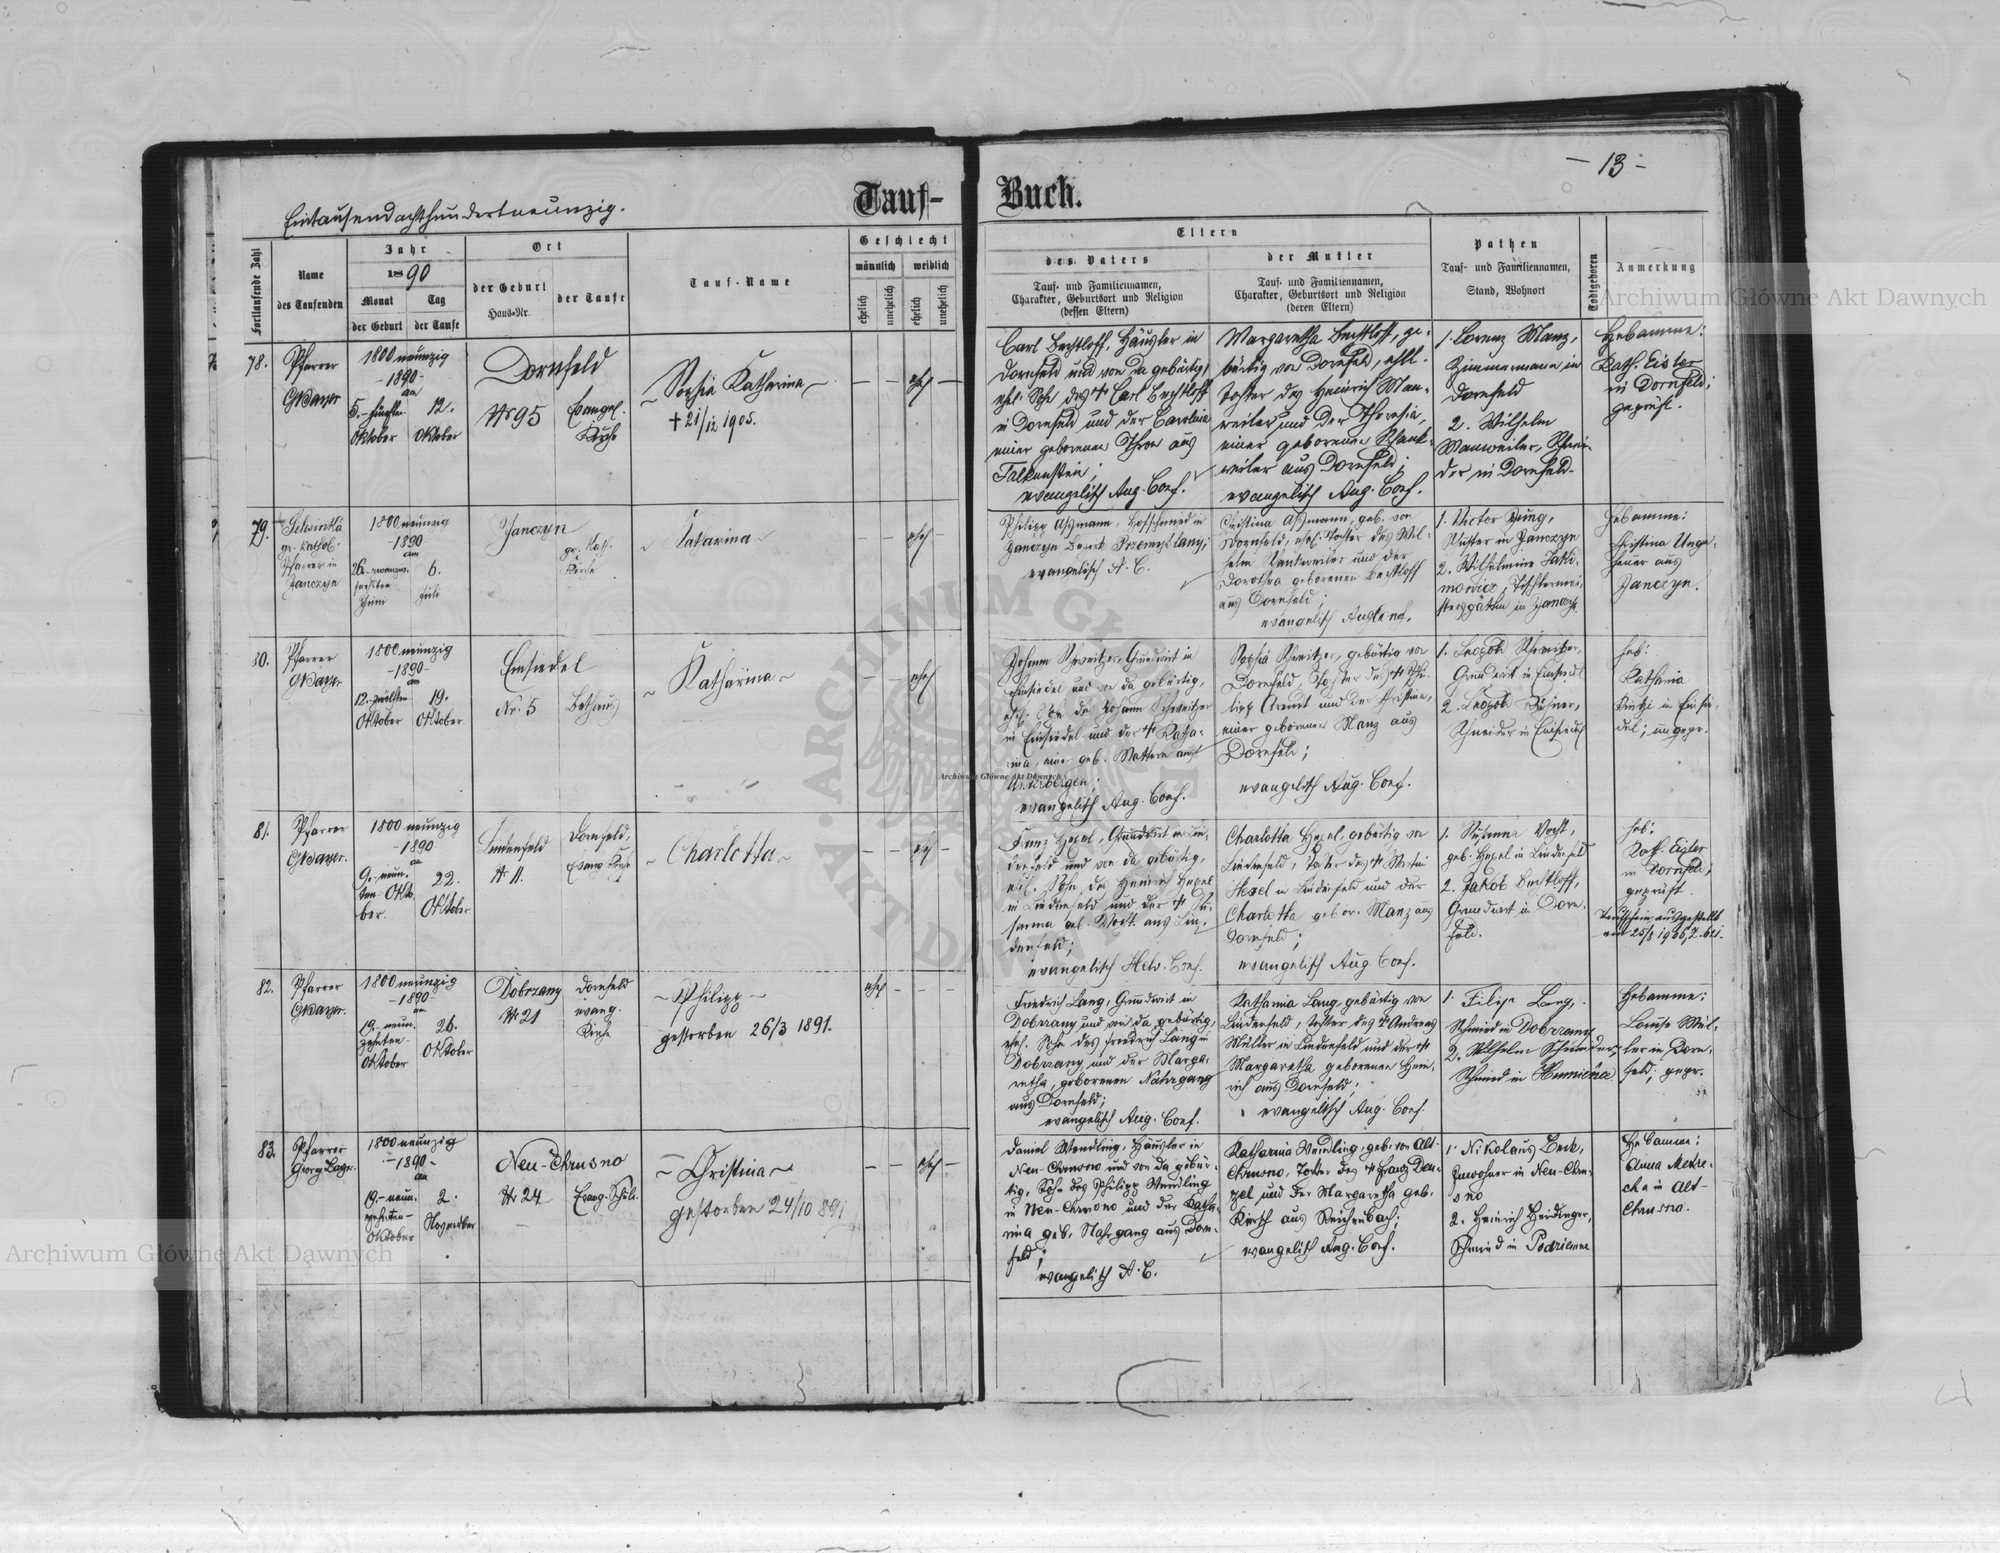 - 13 -
Tauf-Buch.
Eintausendachthundertneunzig.
Fortlaufende Zahl
Name
des Taufenden
Jahr
1890
Monat
der Geburt
Tag
der Taufe
Ort
der Geburt
Haus-Nr.
der Taufe
Tauf-Name
Geschlecht
männlich
weiblich
ehelich
unehelich
ehelich
unehelich
Eltern
des Vaters
Tauf- und Familiennamen,
Charakter, Geburtsort und Religion
(dessen Eltern)
der Mutter
Tauf- und Familiennamen,
Charakter, Geburtsort und Religion
(deren Eltern)
Pathen
Tauf- und Familiennamen,
Stand, Wohnort
Todtgeboren
Anmerkung
78.
Pfarrer
GBayer
1800 neunzig
-1890-
am
5.-fünften
Oktober
12.
Oktober
Dornfeld
Nr 95
Evangel.
Kirche
~ Sophia Katharina ~
† 21/12 1905.
— — ehel —
Carl Bechtloff, Häusler in
Dornfeld und von da gebürtig,
ehel. Sohn des † Carl Bechtloff
in Dornfeld und der Carolina
einer geborenen Thron aus
Falkenstein;
evangelisch Aug. Conf.
Margaretha Bechtloff, ge-
bürtig von Dornfeld, ehel.
Tochter des Heinrich Man-
weiler und der Theresia,
einer geborenen
weiler aus Dornfeld;
evangelisch Aug. Conf.
1. Lorenz Manz,
Zimmermann in
Dornfeld
2. Wilhelm
Manweiler, Schnei-
der in Dornfeld.
Hebamme:
Kath. Eisler
in Dornfeld;
geprüft.
79.
gr. kathol.
Pfarrer in
Janczyn
1800 neunzig
-1890
am
26.-zwanzig-
sechsten
Juni
6.
Juli
Janczyn
gr. kath.
Kirche
~ Katarina ~
— — ehel —
Philipp Aßmann, Hofschmied in
Janczyn Bezirk Przemyslany;
evangelisch A. C.
Christina Aßmann, geb. von
Dornfeld, ehel. Tochter des Wil-
helm und der
Dorothea geborenen Bechtloff
aus Dornfeld;
evangelisch Aug. Conf.
1. Victor
in Janczyn
2. Wilhelmine Jaki-
mowicz, Tischlermei-
stersgattin in Janczyn
Hebamme:
Christina Unge-
heuer aus
Janczyn.
80.
Pfarrer
GBayer
1800 neunzig
-1890-
am
12.-zwölften
Oktober
19.
Oktober
Einsiedel
Nr. 5
Bethaus
~ Katharina ~
— — ehel —
Johann Schweitzer, Grundwirt in
Einsiedel und von da gebürtig,
ehel. Sohn des Johann Schweitzer
in Einsiedel und der † Katha-
rina, einer geb. Mattern aus
Unterbergen;
evangelisch Aug. Conf.
Sophia Schweitzer, gebürtig von
Dornfeld, Tochter des † Phi-
lipp und der Christina,
einer geborenen Manz aus
Dornfeld;
evangelisch Aug. Conf.
1. Leopold Schweitzer,
Grundwirt in Einsiedel
2. Leopold
Schneider in Einsiedel
Heb:
Katharina
in Einsie-
del; ungepr.
81.
Pfarrer
GBayer.
1800 neunzig
-1890-
am
9.-neun-
ten Okto-
ber.
22.
Oktober
Lindenfeld
Nr 11.
Dornfeld,
Evang. Kirche
~ Charlotta ~
— — ehel —
Franz Hexel, Grundwirt in Lin-
denfeld und von da gebürtig,
ehel. Sohn des Heinrich Hexel
in Lindenfeld und der † Su-
sanna geb. Vogt aus Lin-
denfeld;
evangelisch Helv. Conf.
Charlotta Hexel, gebürtig von
Lindenfeld, Tochter des † Martin
Hexel in Lindenfeld und der
Charlotta gebor. Manz aus
Dornfeld;
evangelisch Aug. Conf.
1. Susanna Vogt,
geb. Hexel in Lindenfeld
2. Jakob Bechtloff,
Grundwirt in Dorn-
feld.
Heb:
Kath. Eisler
in Dornfeld;
geprüft.
Taufschein ausgestellt
82.
Pfarrer
GBayer.
1800 neunzig
-1890-
am
19.-neun-
zehnten-
Oktober
26.
Oktober
Dobrzany
Nr 21
Dornfeld
evang.
Kirche
~ Philipp ~
gestorben 26/3 1891.
ehel — — —
Friedrich Lang, Grundwirt in
Dobrzany und von da gebürtig,
ehel. Sohn des Friedrich Lang in
Dobrzany und der Marga-
retha, geborenen Nahrgang
aus Dornfeld;
evangelisch Aug. Conf.
Katharina Lang, gebürtig von
Lindenfeld, Tochter des † Andreas
Müller in Lindenfeld und der †
Margaretha geborenen Hein-
rich aus Dornfeld;
evangelisch Aug. Conf.
1. Filip Lang,
Schmied in Dobrzany
2. Wilhelm Schneider,
Schmied in Humieniec
Hebamme:
Louise Mül-
ler in Dorn-
feld; gepr.
83.
Pfarrer
Georg Bayer.
1800 neunzig
-1890-
am
19.-neun-
zehnten-
Oktober
2.
November
Neu-Chrusno
Nr 24
Evang. Schule
~ Christina ~
gestorben 24/10 891
— — ehel —
Daniel Wendling, Häusler in
Neu-Chrusno und von da gebür-
tig, Sohn des Philipp Wendling
in Neu-Chrusno und der Katha-
rina geb. Nahrgang aus Dorn-
feld;
evangelisch A. C.
Katharina Wendling, geb. von Alt-
Chrusno, Tochter des † Franz Den-
zel und der Margaretha geb.
Kirsch aus Reichenbach;
evangelisch Aug. Conf.
1. Nikolaus Beck,
Inwohner in Neu-Chru-
sno
2. Heinrich Heidinger,
Schmied in Podzimne
Hebamme:
Anna
in Alt-
Chrusno.
Archiwum Główne Akt Dawnych
Archiwum Główne Akt Dawnych
Archiwum Główne Akt Dawnych
ARCHIWUM GŁÓWNE AKT DAWNYCH